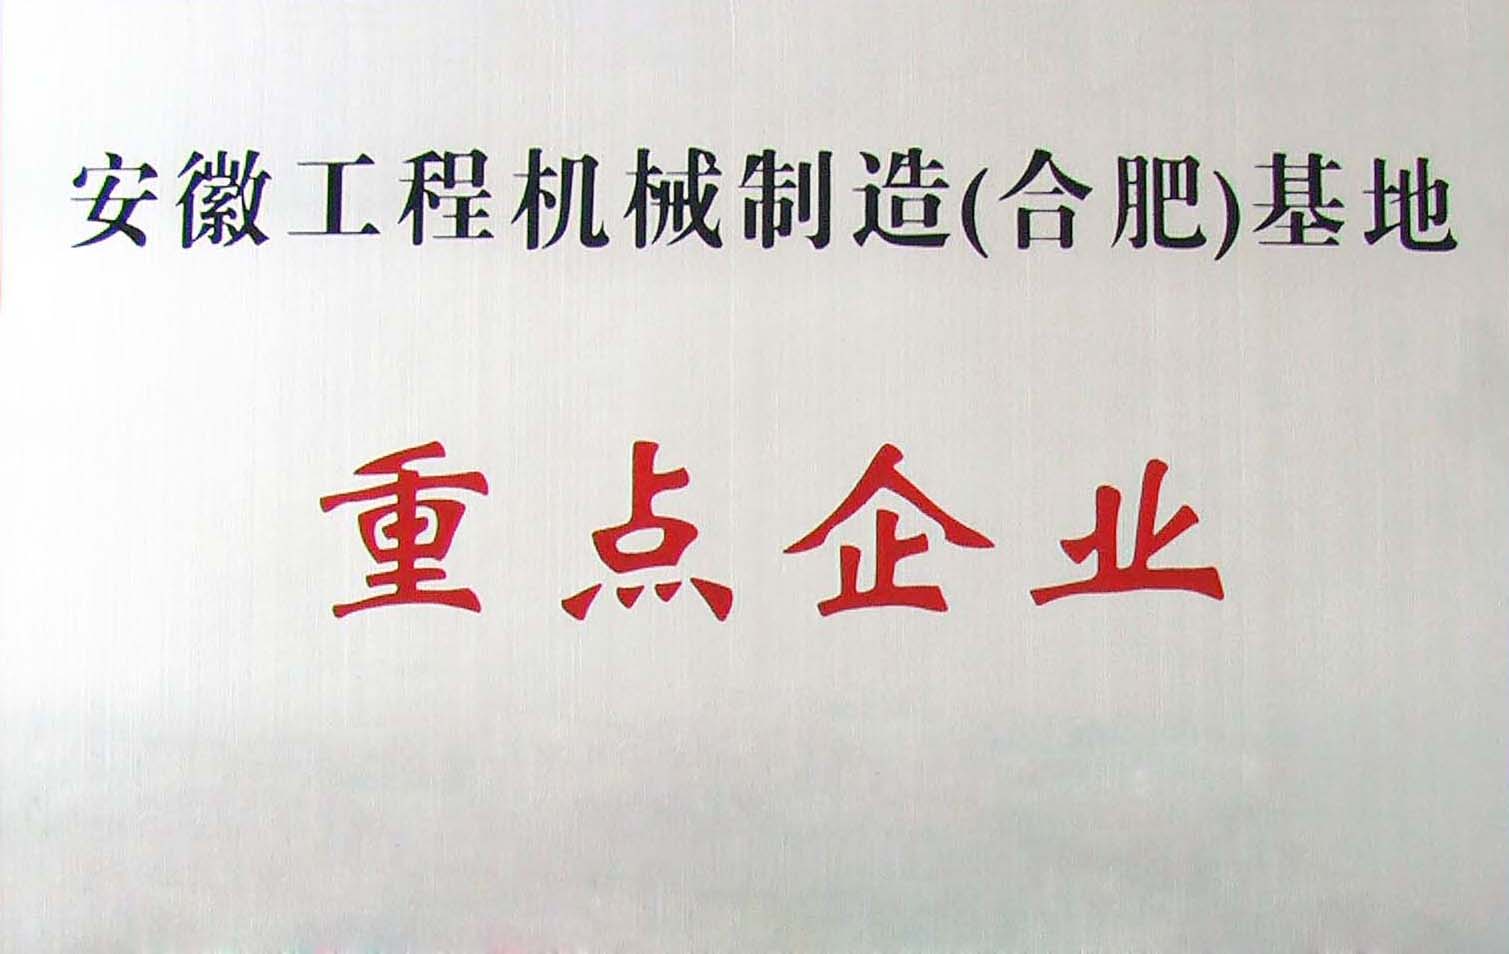 安徽工程机械制造(合肥)基地
重点企业